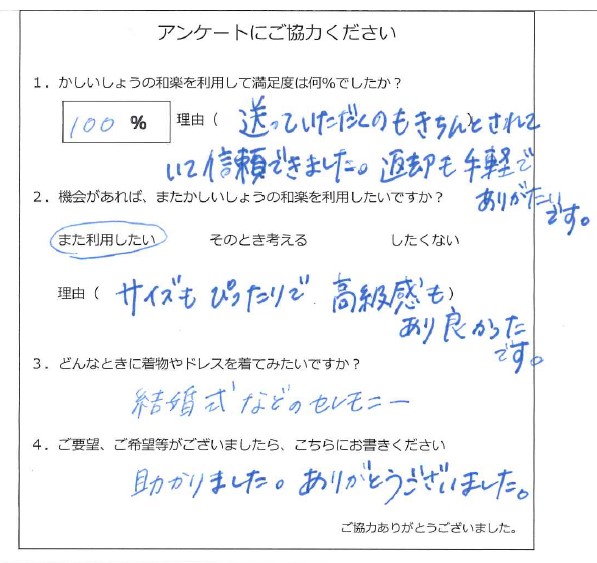 アンケートにご協力ください
1．かしいしょうの和楽を利用して満足度は何%でしたか？
100 % 理由（ 送っていただくのもきちんとされて ）
いて信頼できました。返却も手軽で
ありがたいです。
2．機会があれば、またかしいしょうの和楽を利用したいですか？
また利用したい そのとき考える したくない
理由（ サイズもぴったりで 高級感も ）
あり良かった
です。
3．どんなときに着物やドレスを着てみたいですか？
結婚式などのセレモニー
4．ご要望、ご希望等がございましたら、こちらにお書きください
助かりました。ありがとうございました。
ご協力ありがとうございました。